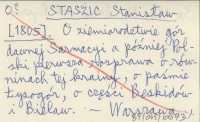 O? STASZIC Stanisław
[1805]. O ziemiorodztwie gór
dawnej Sarmacyi a później Pol-
ski pierwsza rozprawa o rów-
ninach tej krainy, o paśmie
Łysogór, o części Beskidów
i Bielaw. – Warszawa.